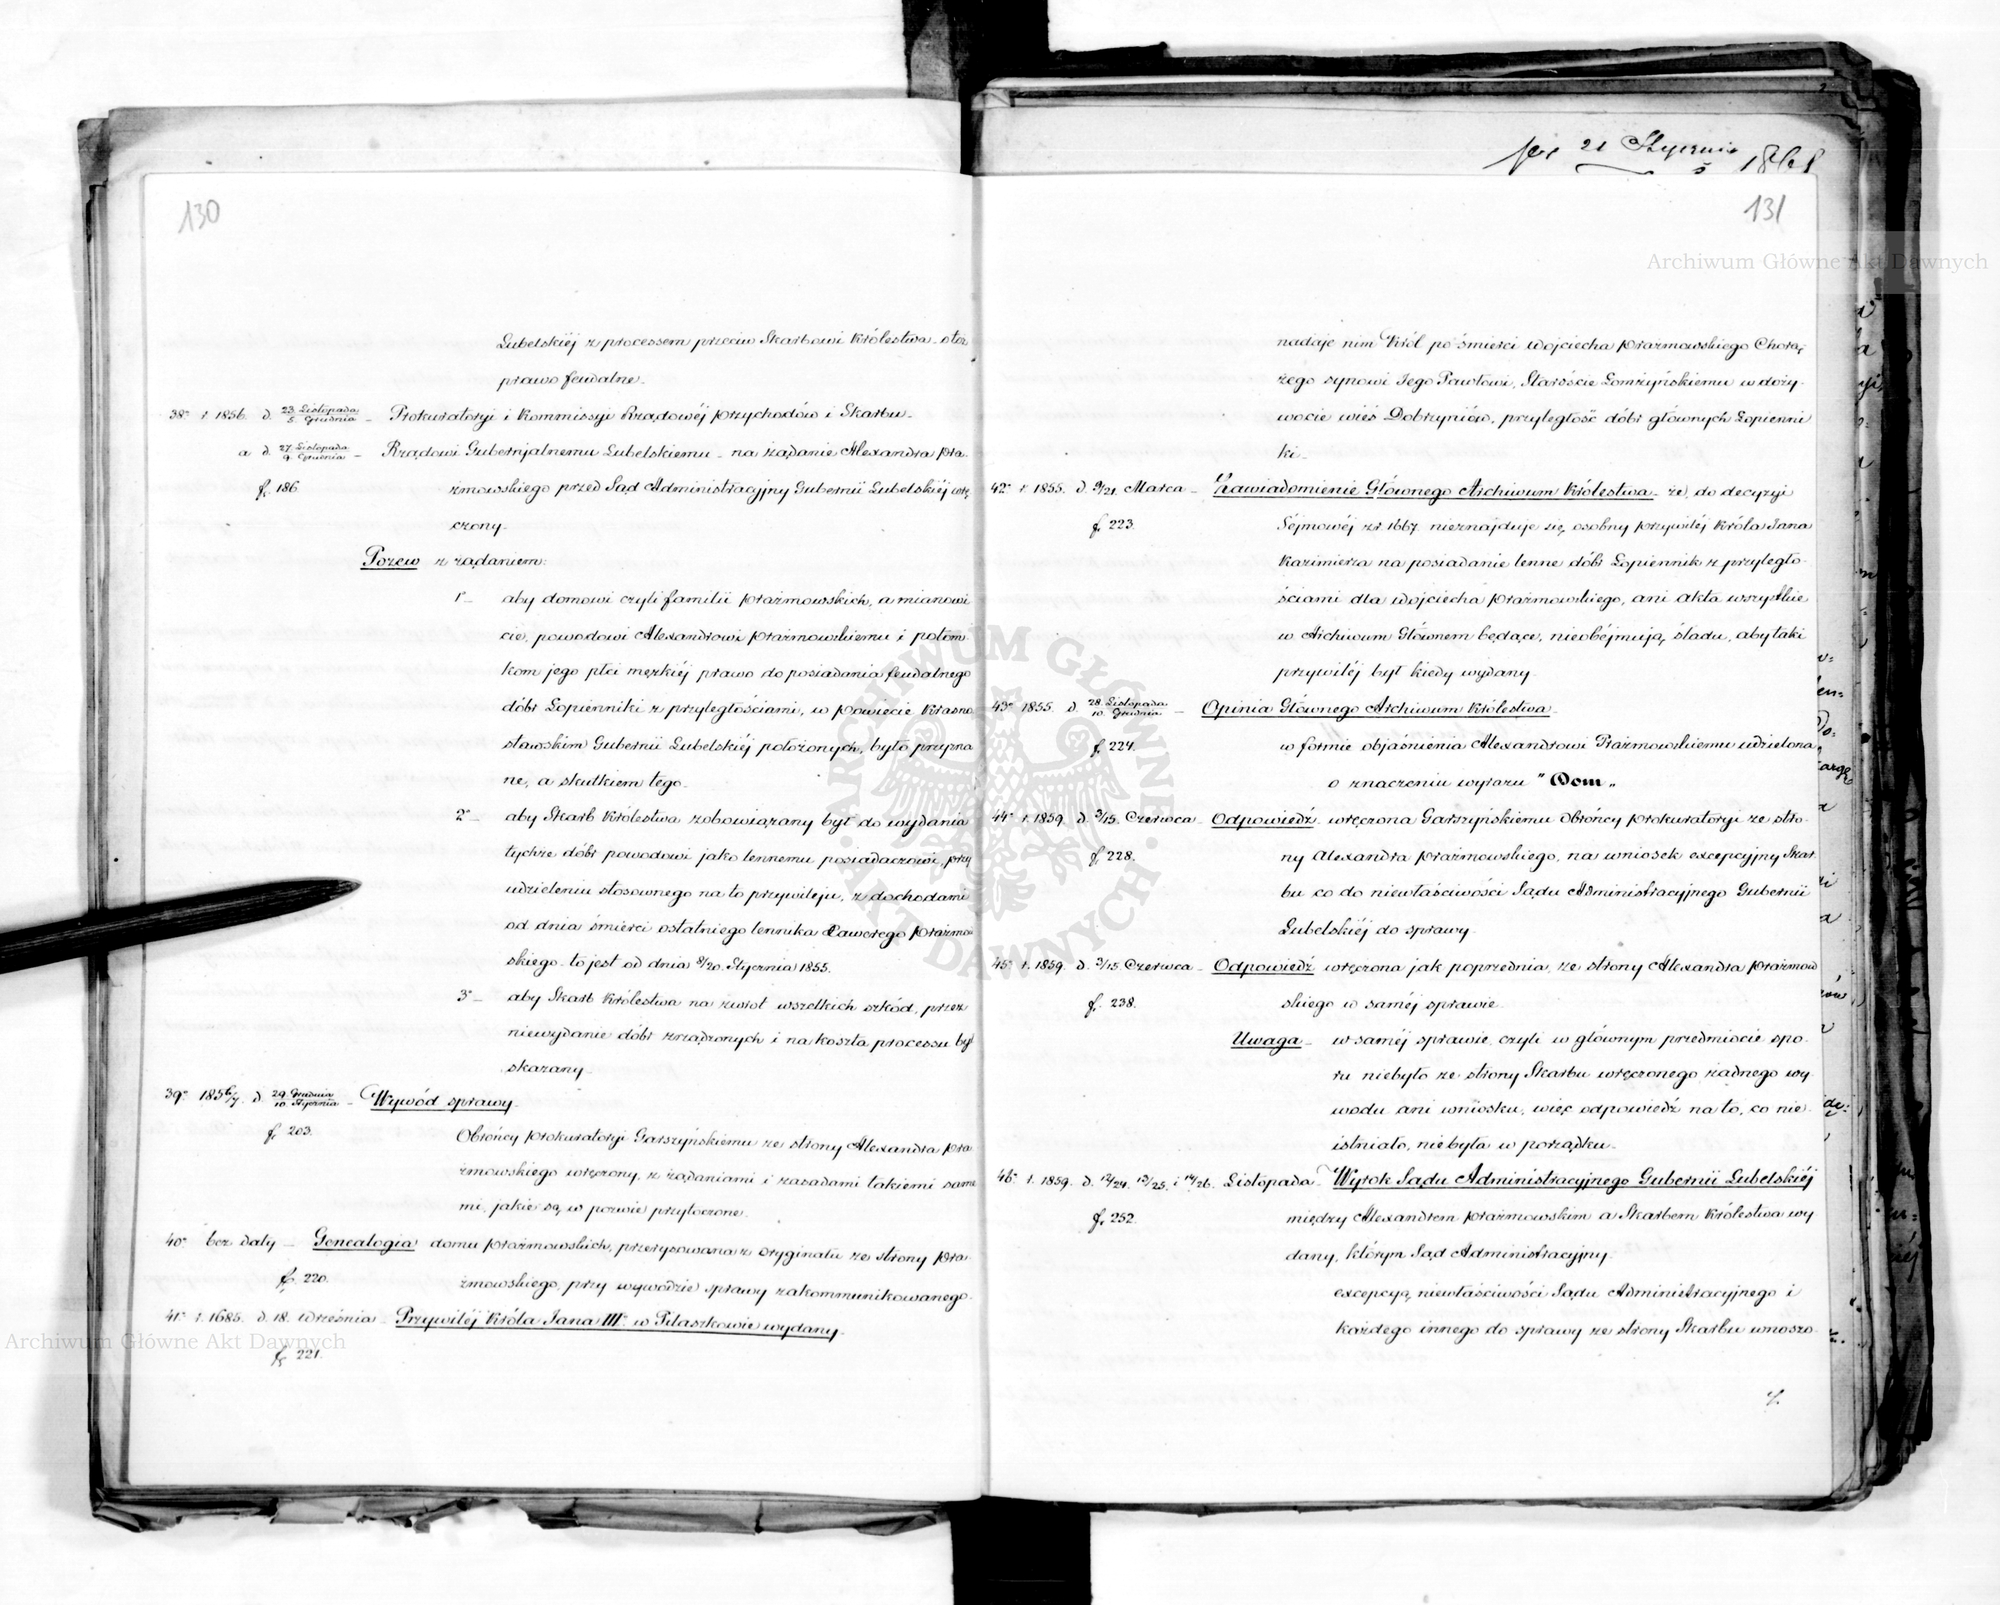 130
Lubelskiéj z processem przeciw Skarbowi Królestwa o toż
prawo feudalne.
38° r. 1856. d. 23 Listopada / 5 Grudnia – Prokuratoryi i Kommissyi Rządowéj Przychodów i Skarbu –
a d. 27 Listopada / 9 Grudnia – Rządowi Gubernjalnemu Lubelskiemu – na żądanie Alexandra Pra-
f. 186. żmowskiego przed Sąd Administracyjny Gubernii Lubelskiéj wrę
czony –
Pozew z żądaniem:
1° – aby domowi czyli familii Prażmowskich, a mianowi
cie, powodowi Alexandrowi Prażmowskiemu i potom
kom jego płci męzkiéj prawo do posiadania feudalnego
dóbr Łopienniki z przyległościami, w Powiecie Krasno
stawskim Gubernii Lubelskiéj położonych, było przyzna
ne, a skutkiem tego –
2° – aby Skarb Królestwa zobowiązany był do wydania
tychże dóbr powodowi jako lennemu posiadaczowi, przy
udzieleniu stosownego na to przywileju, z dochodami
od dnia śmierci ostatniego lennika Xawerego Prażmow
skiego – to jest od dnia 8/20. Stycznia 1855.
3° – aby Skarb Królestwa na zwrot wszelkich szkód, przez
niewydanie dóbr zrządzonych i na koszta processu był
skazany –
39° 1856/7. d. 29 Grudnia / 10 Stycznia – Wywód sprawy –
f. 203. Obrońcy Prokuratoryi Garszyńskiemu ze strony Alexandra Pra
żmowskiego wręczony, z żądaniami i zasadami takiemi same
mi, jakie są w pozwie przytoczone.
40° bez daty – Genealogia domu Prażmowskich, przerysowana z oryginału ze strony Pra-
f. 220. żmowskiego, przy wywodzie sprawy zakommunikowanego.
41° r. 1685. d. 18. Września – Przywiléj Króla Jana III° w Pilaszkowie wydany –
f. 221.
21 Stycznia
131
nadaje nim Król po śmierci Wojciecha Prażmowskiego Chorą-
żego synowi Jego Pawłowi, Staroście Łomżyńskiemu w doży-
wocie wieś Dobrzyniów, przyległość dóbr głównych Łopienni
ki –
42° r. 1855. d. 9/21. Marca – Zawiadomienie Głównego Archiwum Królestwa – że, do decyzyi
f. 223. Séjmowéj z r. 1667. nieznajduje się, osobny przywiléj Króla Jana
Kazimierza na posiadanie lenne dóbr Łopiennik z przyległo-
ściami dla Wojciecha Prażmowskiego, ani akta wszystkie
w Archiwum Głównem będące, nieobéjmują śladu, aby taki
przywiléj był kiedy wydany.
43° 1855. d. 28 Listopada / 10 Grudnia – Opinia Głównego Archiwum Królestwa
f. 224. w formie objaśnienia Alexandrowi Prażmowskiemu udzielona
o znaczeniu wyrazu "Dom„
44° r. 1859. d. 3/15. Czerwca – Odpowiedź wręczona Garszyńskiemu Obrońcy Prokuratoryi ze stro-
f. 228. ny Alexandra Prażmowskiego, na wniosek excepcyjny Skar-
bu co do niewłaściwości Sądu Administracyjnego Gubernii
Lubelskiéj do sprawy.
45° r. 1859. d. 3/15. Czerwca – Odpowiedź wręczona jak poprzednia, ze strony Alexandra Prażmow
f. 238. skiego w saméj sprawie.
Uwaga – w saméj sprawie czyli w głównym przedmiocie spo-
ru niebyło ze strony Skarbu wręczonego żadnego wy-
wodu ani wniosku, więc odpowiedź na to, co nie
istniało, niebyła w porządku –
46° r. 1859. d. 12/24. 13/25. i 14/26. Listopada – Wyrok Sądu Administracyjnego Gubernii Lubelskiéj
f. 252. między Alexandrem Prażmowskim a Skarbem Królestwa wy
dany, którym Sąd Administracyjny –
excepcyą niewłaściwości Sądu Administracyjnego i
każdego innego do sprawy ze strony Skarbu wnoszo-
Archiwum Główne Akt Dawnych
Archiwum Główne Akt Dawnych
ARCHIWUM GŁÓWNE AKT DAWNYCH